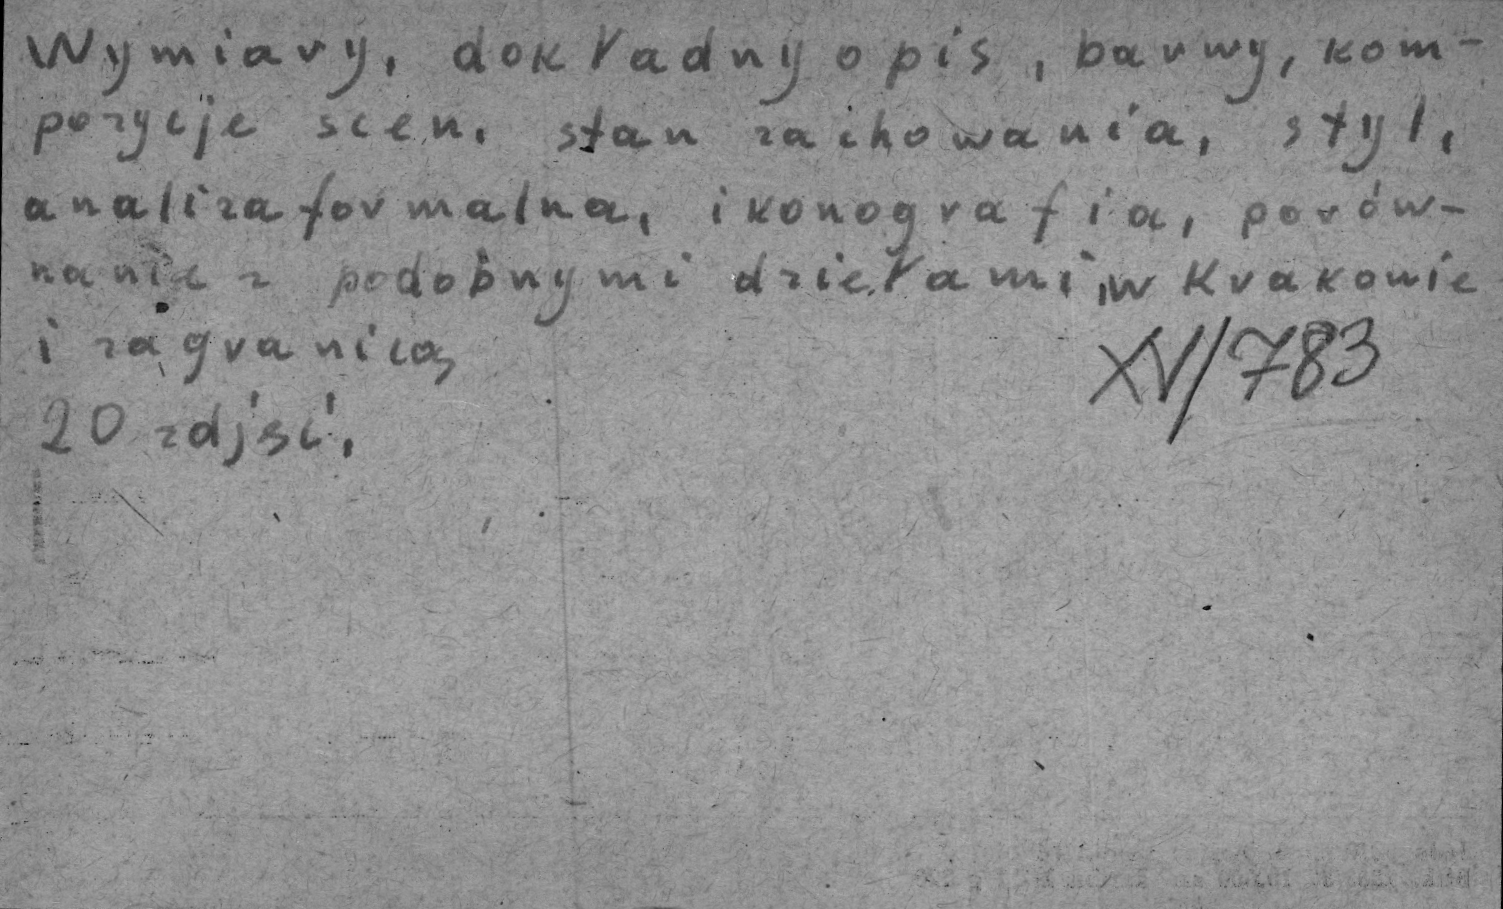 Wymiary, dokładny opis, barwy, kom-
pozycje scen, stan zachowania, styl,
analiza formalna, ikonografia, porów-
nanie z podobnymi dziełami w Krakowie
i zagranicą
XV/783
20 zdjęć.